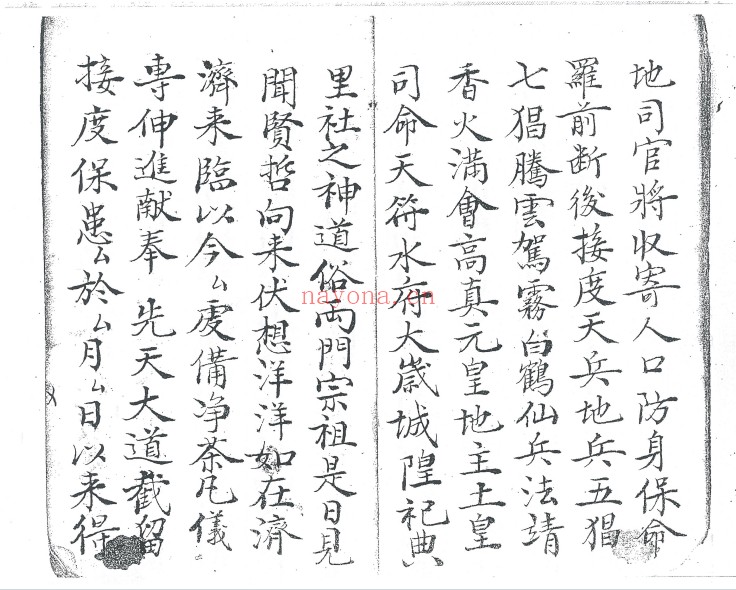 地司官將収寄人口防身保命
羅前断後接度天兵地兵五猖
七猖騰雲駕霧白鶴仙兵法靖
香火満會高真元皇地主土皇
司命天符水府大歳城隍祀典
里社之神道俗両門宗祖是日見
聞賢哲向来伏想洋洋如在濟
濟来臨以今厶虔備净茶凡儀
專伸進献奉 先天大道截留
接度保患厶於厶月厶日以来得
nayona.cn